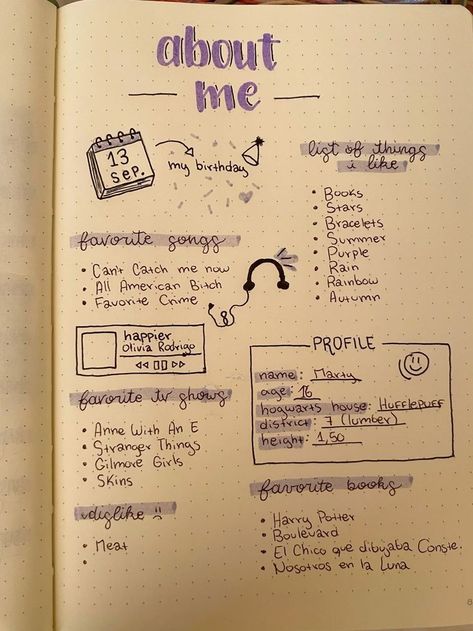 about
me
13
sep.
my birthday
list of things
i like
• Books
• Stars
• Bracelets
• Summer
• Purple
• Rain
• Rainbow
• Autumn
favorite songs
• Can't Catch me now
• All American Bitch
• Favorite Crime
happier
Olivia Rodrigo
PROFILE
name: Marty
age: 16
hogwarts house: Hufflepuff
district: 7 (lumber)
height: 1,50
favorite tv shows
• Anne With An E
• Stranger Things
• Gilmore Girls
• Skins
i dislike
• Meat
•
favorite books
• Harry Potter
• Boulevard
• El Chico que dibujaba Conste.
• Nosotros en la Luna
8